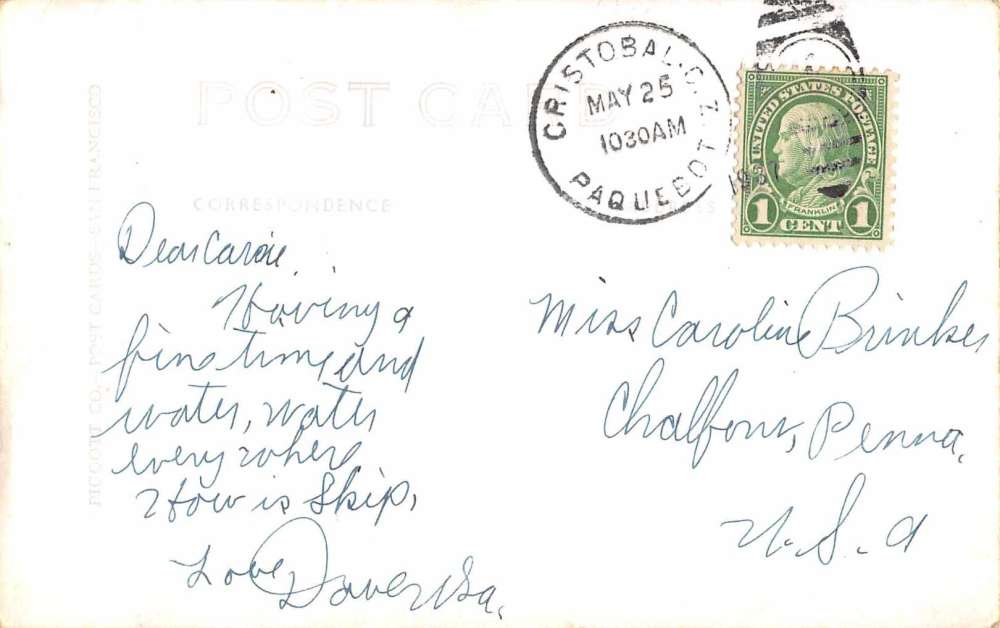 POST CARD
CRISTOBAL. C. Z.
MAY 25
1030 AM
1937
PAQUEBOT
UNITED STATES POSTAGE
FRANKLIN
1 CENT 1
CORRESPONDENCE
PICCORT CO. POST CARDS SAN FRANCISCO
Dear Carrie.
Having a
fine time and
water, water
every where
How is Skip.
Love
Miss Caroline Brinker
Chalfont, Penna.
U. S. A